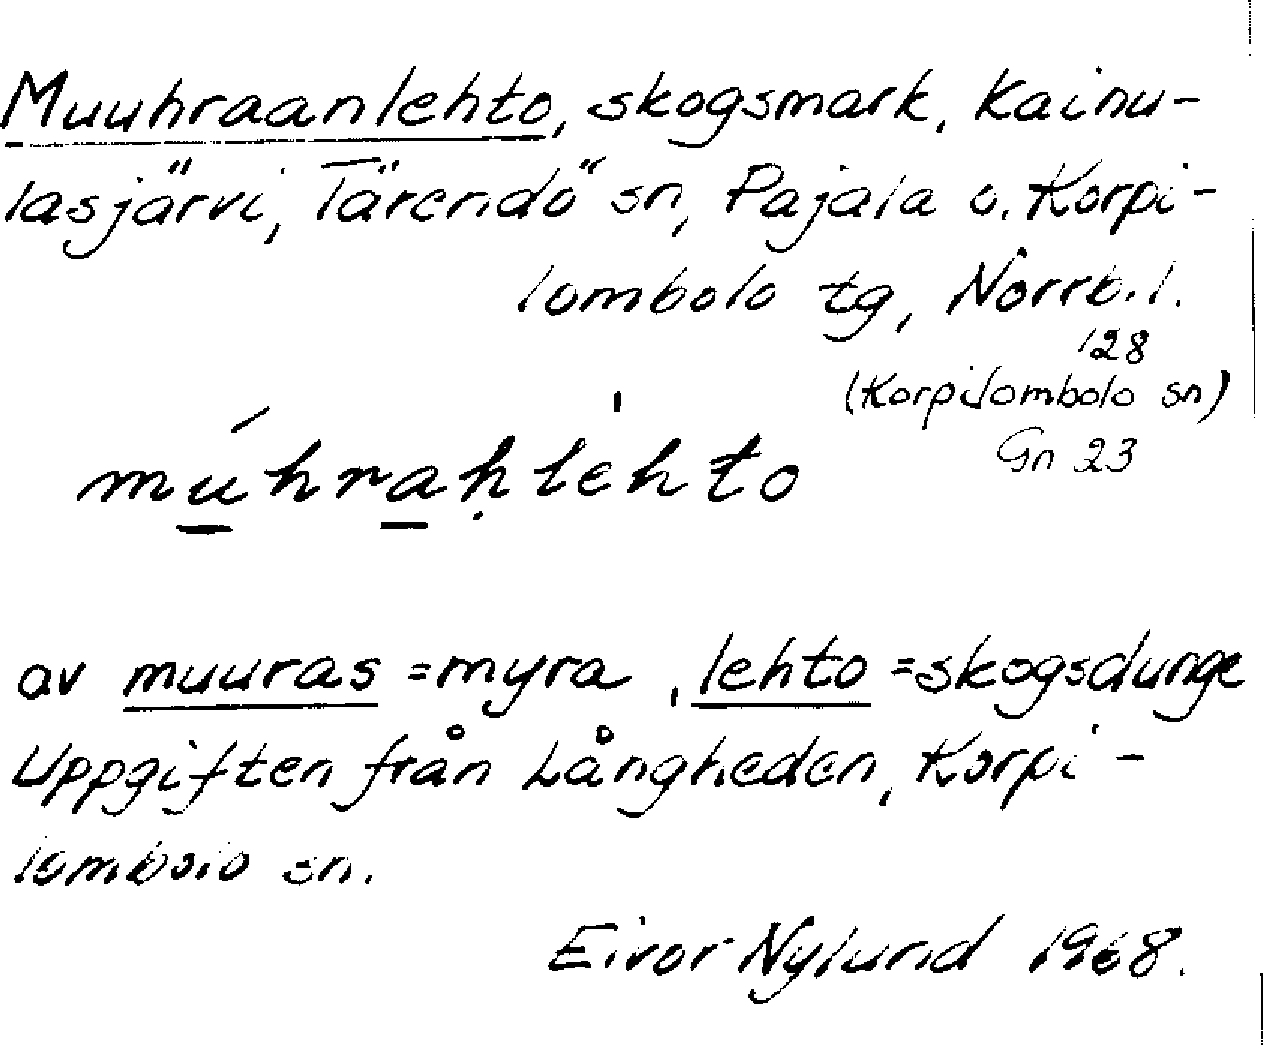 Muuhraanlehto, skogsmark, Kainu-
lasjärvi, Tärendö sn, Pajala o. Korpi-
lombolo tg, Norrb. l.
128
(Korpilombolo sn)
Gn 23
múhraḥlèhto
av muuras = myra, lehto = skogsdunge
Uppgiften från Långheden, Korpi-
lombolo sn.
Eivor Nylund 1968.